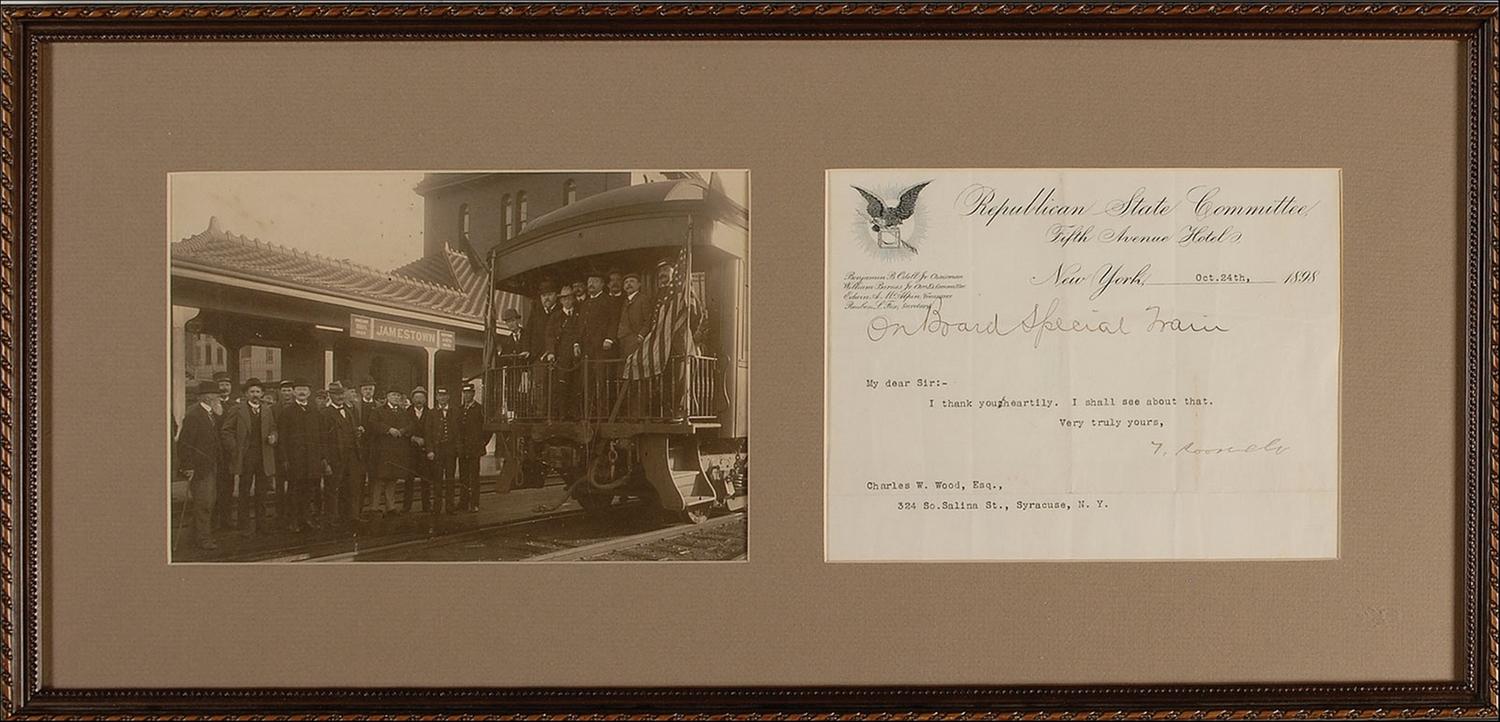 JAMESTOWN
Republican State Committee
Fifth Avenue Hotel
Benjamin B. Odell Jr. Chairman
William Barnes Jr. Com.
Edwin A. McAlpin, Treasurer
Reuben L. Fox, Secretary
New York, Oct.24th, 1898
On Board Special Train
My dear Sir:-
I thank you heartily. I shall see about that.
Very truly yours,
T. Roosevelt
Charles W. Wood, Esq.,
324 So.Salina St., Syracuse, N. Y.